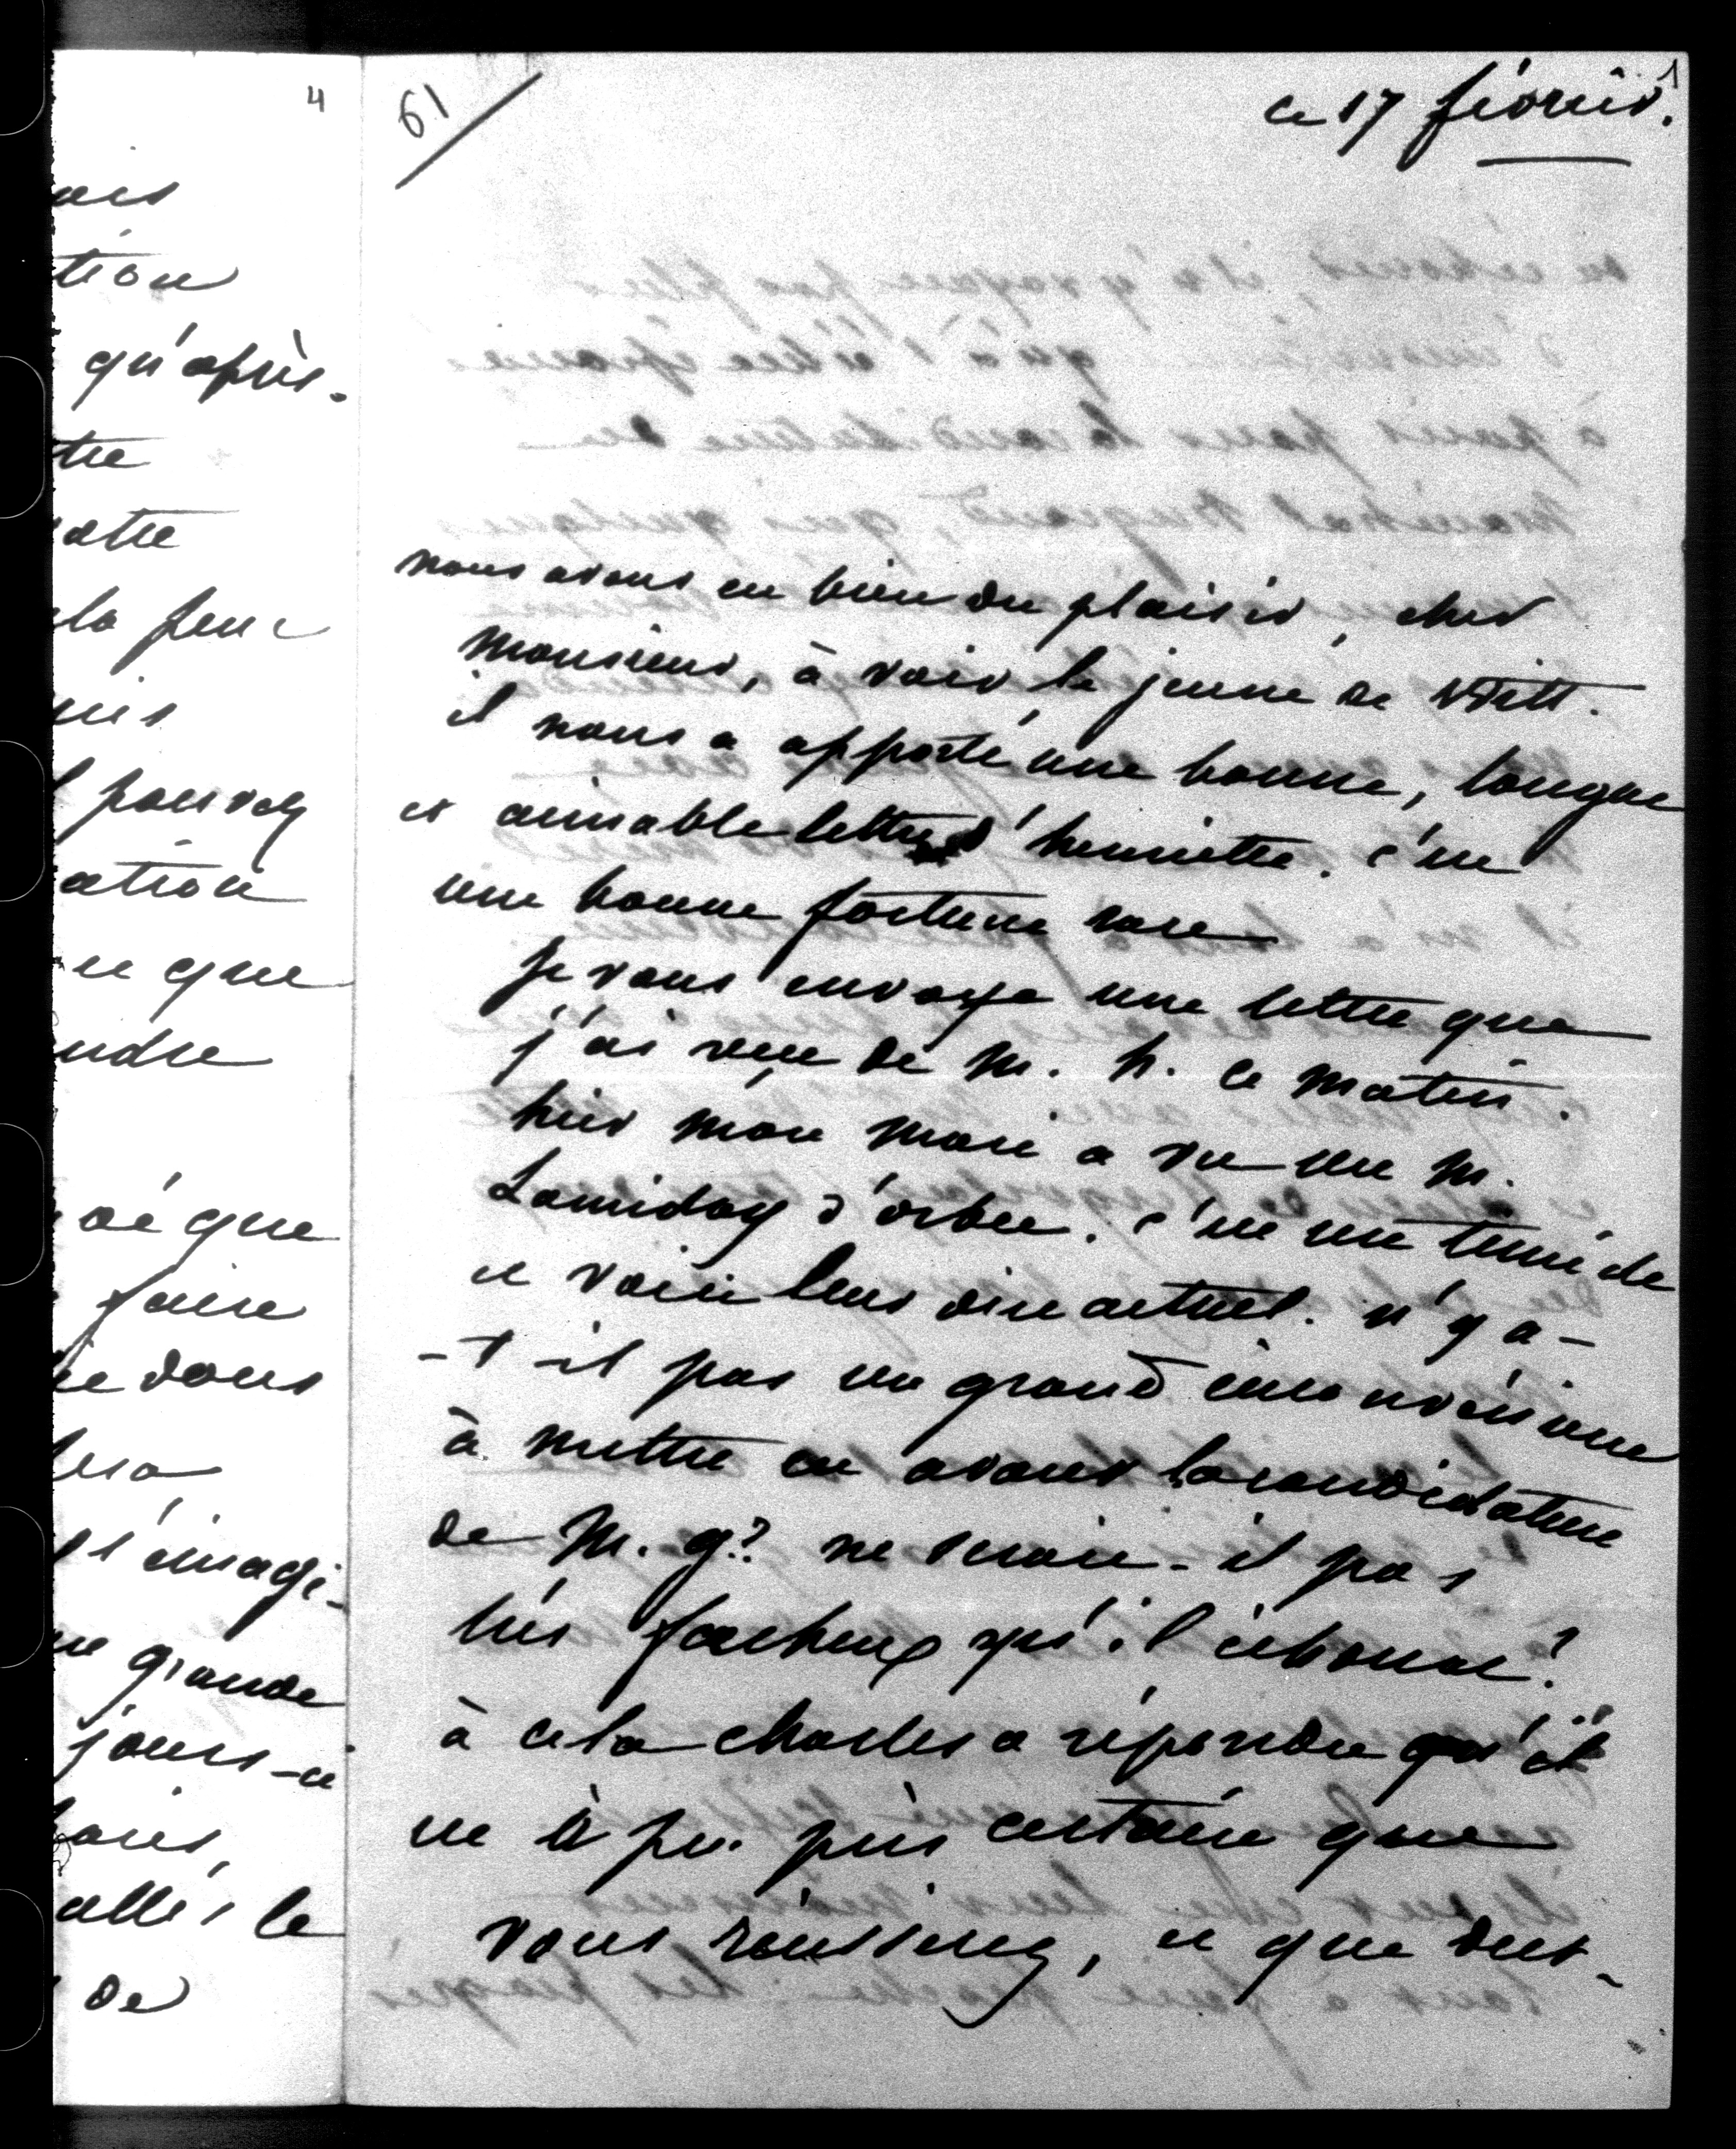 4
ais
tion
qu'après.
tre
atre
la peur
uis
pouvez
ation
ce que
endre
oé que
faire
donc
s'imagi-
grande
jours-ci
allés le
de
61
ce 17 février.
1
nous avons eu bien du plaisir, cher
monsieur, à voir le jeune de Witt.
il nous a apporté une bonne, longue
et aimable lettre d'henriette. c'est
une bonne fortune rare
je vous envoye une lettre que
j'ai reçue de m. h. ce matin.
hier mon mari a vu un M.
Lamiday d'orbec. c'est un timide
et voici leur dire actuel. n'y a-
-t-il pas un grand inconvénient
à mettre en avant la candidature
de M. g? ne serait-il pas
très facheux qu'il échouat?
à cela charles a répondu qu'il
est à peu près certain que
vous réussirez, et que dut-